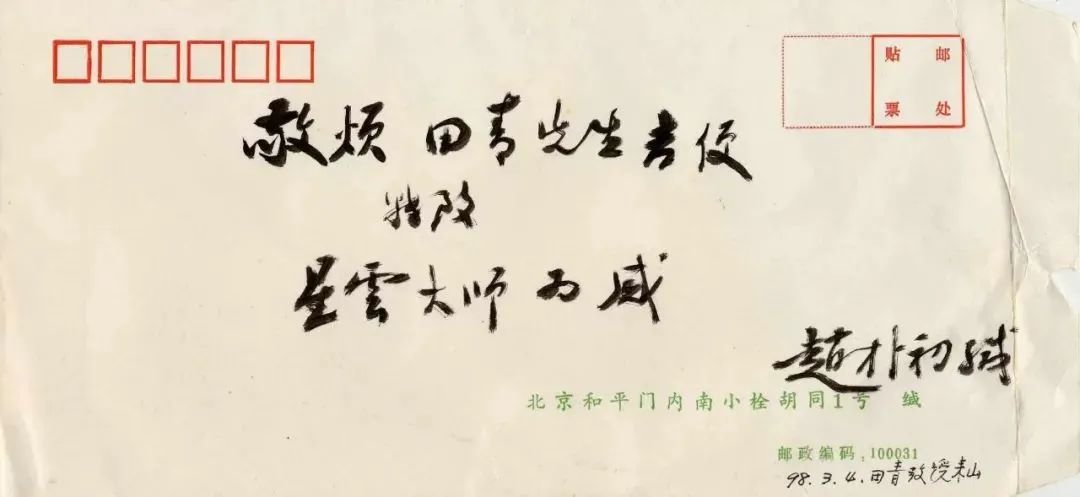 贴 邮
票 处
敬烦 田青先生吉便
致
星雲大师 为感
趙朴初缄
北京和平门内南小栓胡同1号 缄
邮政编码:100031
98.3.4.田青教授来山